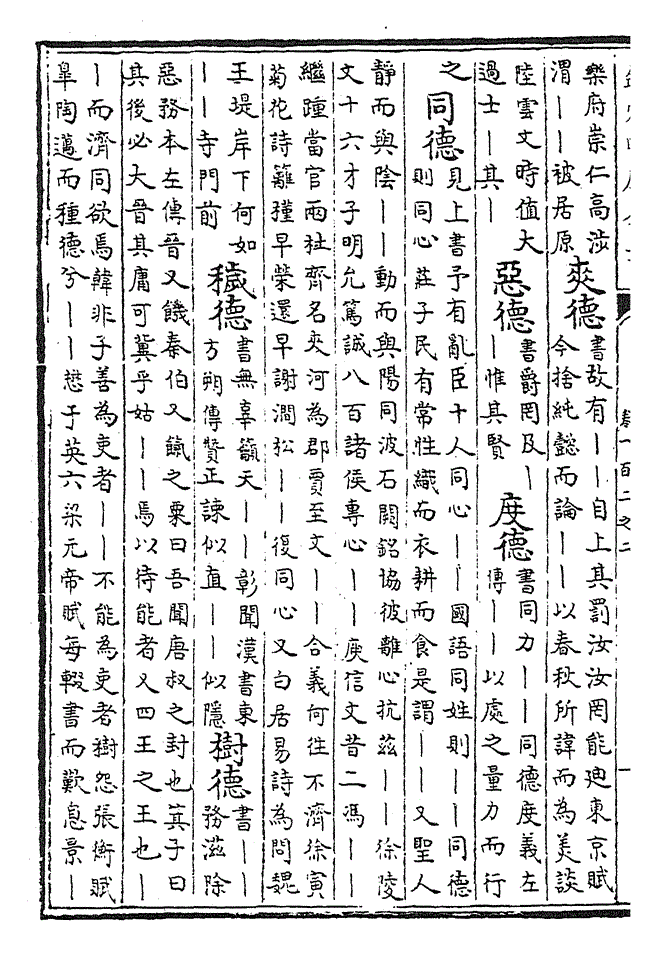 卷一百二之二
樂府崇仁高涉
渭｜｜被居原
爽德
書故有｜｜自上其罰汝汝罔能廸東京賦
今捨純懿而論｜｜以春秋所諱而為美談
陸雲文時值大
過士｜其｜
惡德
書爵罔及｜
｜惟其賢
度德
書同力｜｜同德度義左
傳｜｜以處之量力而行
之
同德
見上書予有亂臣十人同心｜｜國語同姓則｜｜同德
則同心莊子民有常性織而衣耕而食是謂｜｜又聖人
靜而與陰｜｜動而與陽同波石闕銘協彼離心抗茲｜｜徐陵
文十六才子明允篤誠八百諸侯專心｜｜庾信文昔二馮｜｜
繼踵當官兩杜齊名夾河為郡賈至文｜｜合義何往不濟徐寅
菊花詩籬槿早榮還早謝澗松｜｜復同心又白居易詩為問魏
王堤岸下何如
｜｜寺門前
穢德
書無辜籲天｜｜彰聞漢書東
方朔傳贊正諫似直｜｜似隱
樹德
書｜｜
務滋除
惡務本左傳晉又饑秦伯又餼之粟曰吾聞唐叔之封也箕子曰
其後必大晉其庸可冀乎姑｜｜焉以待能者又四王之王也｜
｜而濟同欲焉韓非子善為吏者｜｜不能為吏者樹怨張衡賦
臯陶邁而種德兮｜｜懋于英六梁元帝賦每輟書而歎息景｜